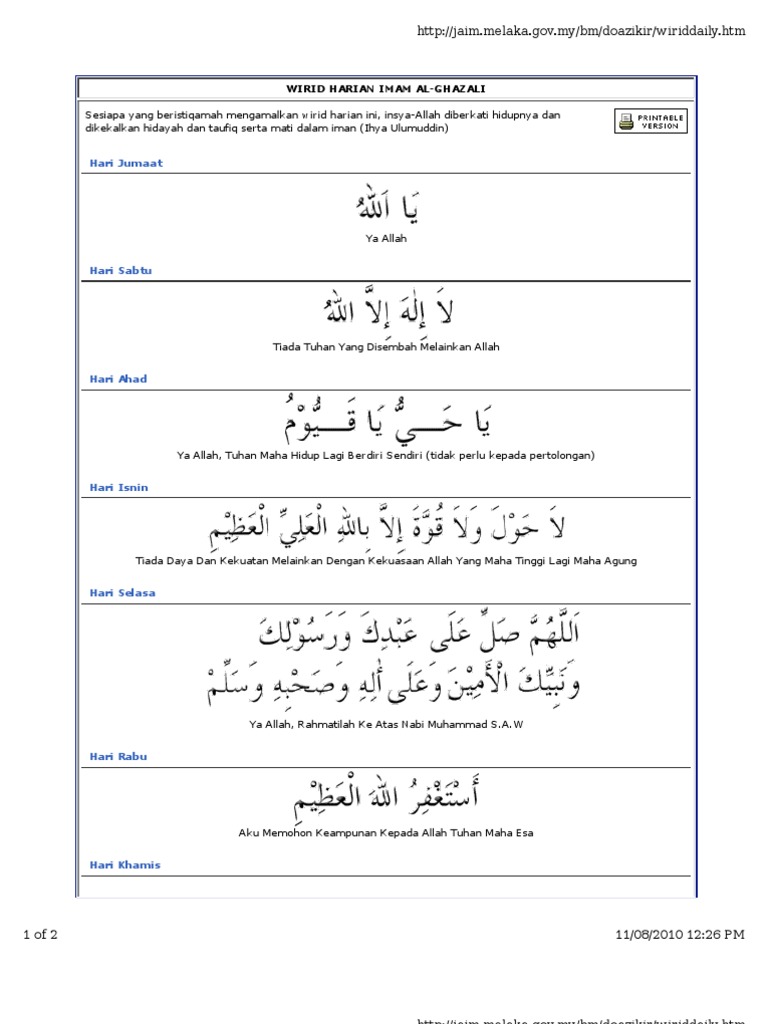 http://jaim.melaka.gov.my/bm/doazikir/wiriddaily.htm
WIRID HARIAN IMAM AL-GHAZALI
Sesiapa yang beristiqamah mengamalkan wirid harian ini, insya-Allah diberkati hidupnya dan
dikekalkan hidayah dan taufiq serta mati dalam iman (Ihya Ulumuddin)
PRINTABLE
VERSION
Hari Jumaat
يَا اَللهُ
Ya Allah
Hari Sabtu
لاَ إِلٰهَ إِلاَّ اللهُ
Tiada Tuhan Yang Disembah Melainkan Allah
Hari Ahad
يَا حَـــيُّ يَا قَـــيُّوْمُ
Ya Allah, Tuhan Maha Hidup Lagi Berdiri Sendiri (tidak perlu kepada pertolongan)
Hari Isnin
لاَ حَوْلَ وَلاَ قُوَّةَ إِلاَّ بِاللهِ الْعَلِيِّ الْعَظِيْمِ
Tiada Daya Dan Kekuatan Melainkan Dengan Kekuasaan Allah Yang Maha Tinggi Lagi Maha Agung
Hari Selasa
اَللَّهُمَّ صَلِّ عَلَى عَبْدِكَ وَرَسُوْلِكَ
وَنَبِيِّكَ الْأَمِيْنَ وَعَلَى أٰلِهِ وَصَحْبِهِ وَسَلِّمْ
Ya Allah, Rahmatilah Ke Atas Nabi Muhammad S.A.W
Hari Rabu
أَسْتَغْفِرُ اللهَ الْعَظِيْمِ
Aku Memohon Keampunan Kepada Allah Tuhan Maha Esa
Hari Khamis
1 of 2
11/08/2010 12:26 PM
http://jaim.melaka.gov.my/bm/doazikir/wiriddaily.htm